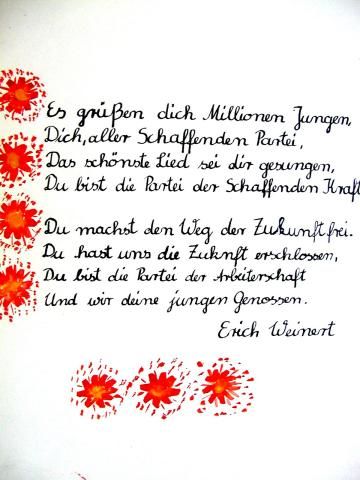 Es grüßen dich Millionen Jungen,
Dich, aller Schaffenden Partei,
Das schönste Lied sei dir gesungen,
Du bist die Partei der Schaffenden Kraft
Du machst den Weg der Zukunft frei.
Du hast uns die Zuknft erschlossen,
Du bist die Partei der Arbeiterschaft
Und wir deine jungen Genossen.
Erich Weinert